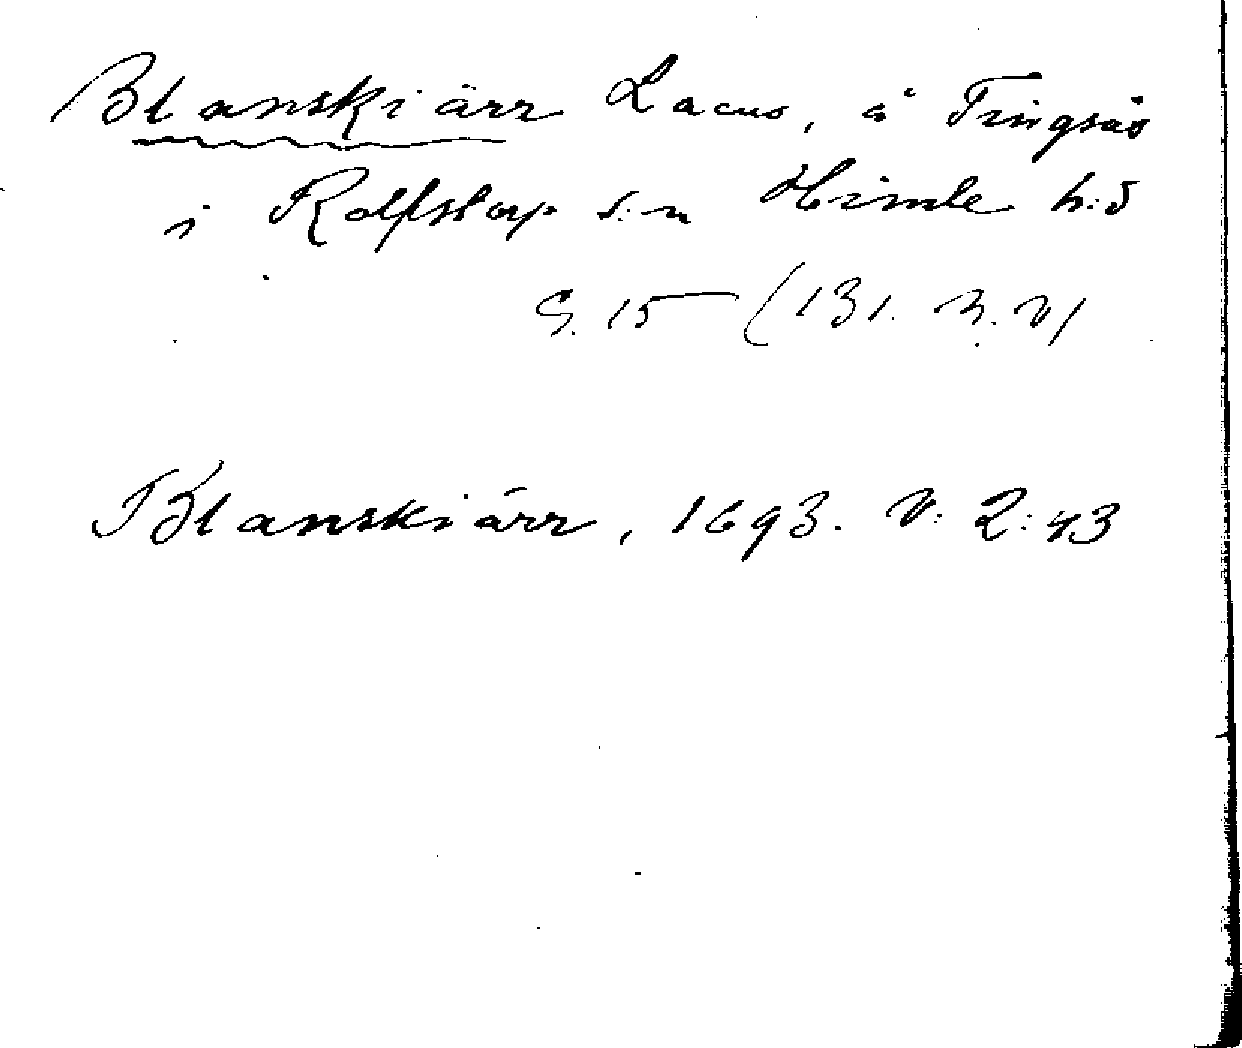 Blanskiärr Lacus, å Tingsås
i Rolfstorp s:n Himle h:d
S. 15 (131. N. V)
Blanskiärr, 1693. V: 2:43